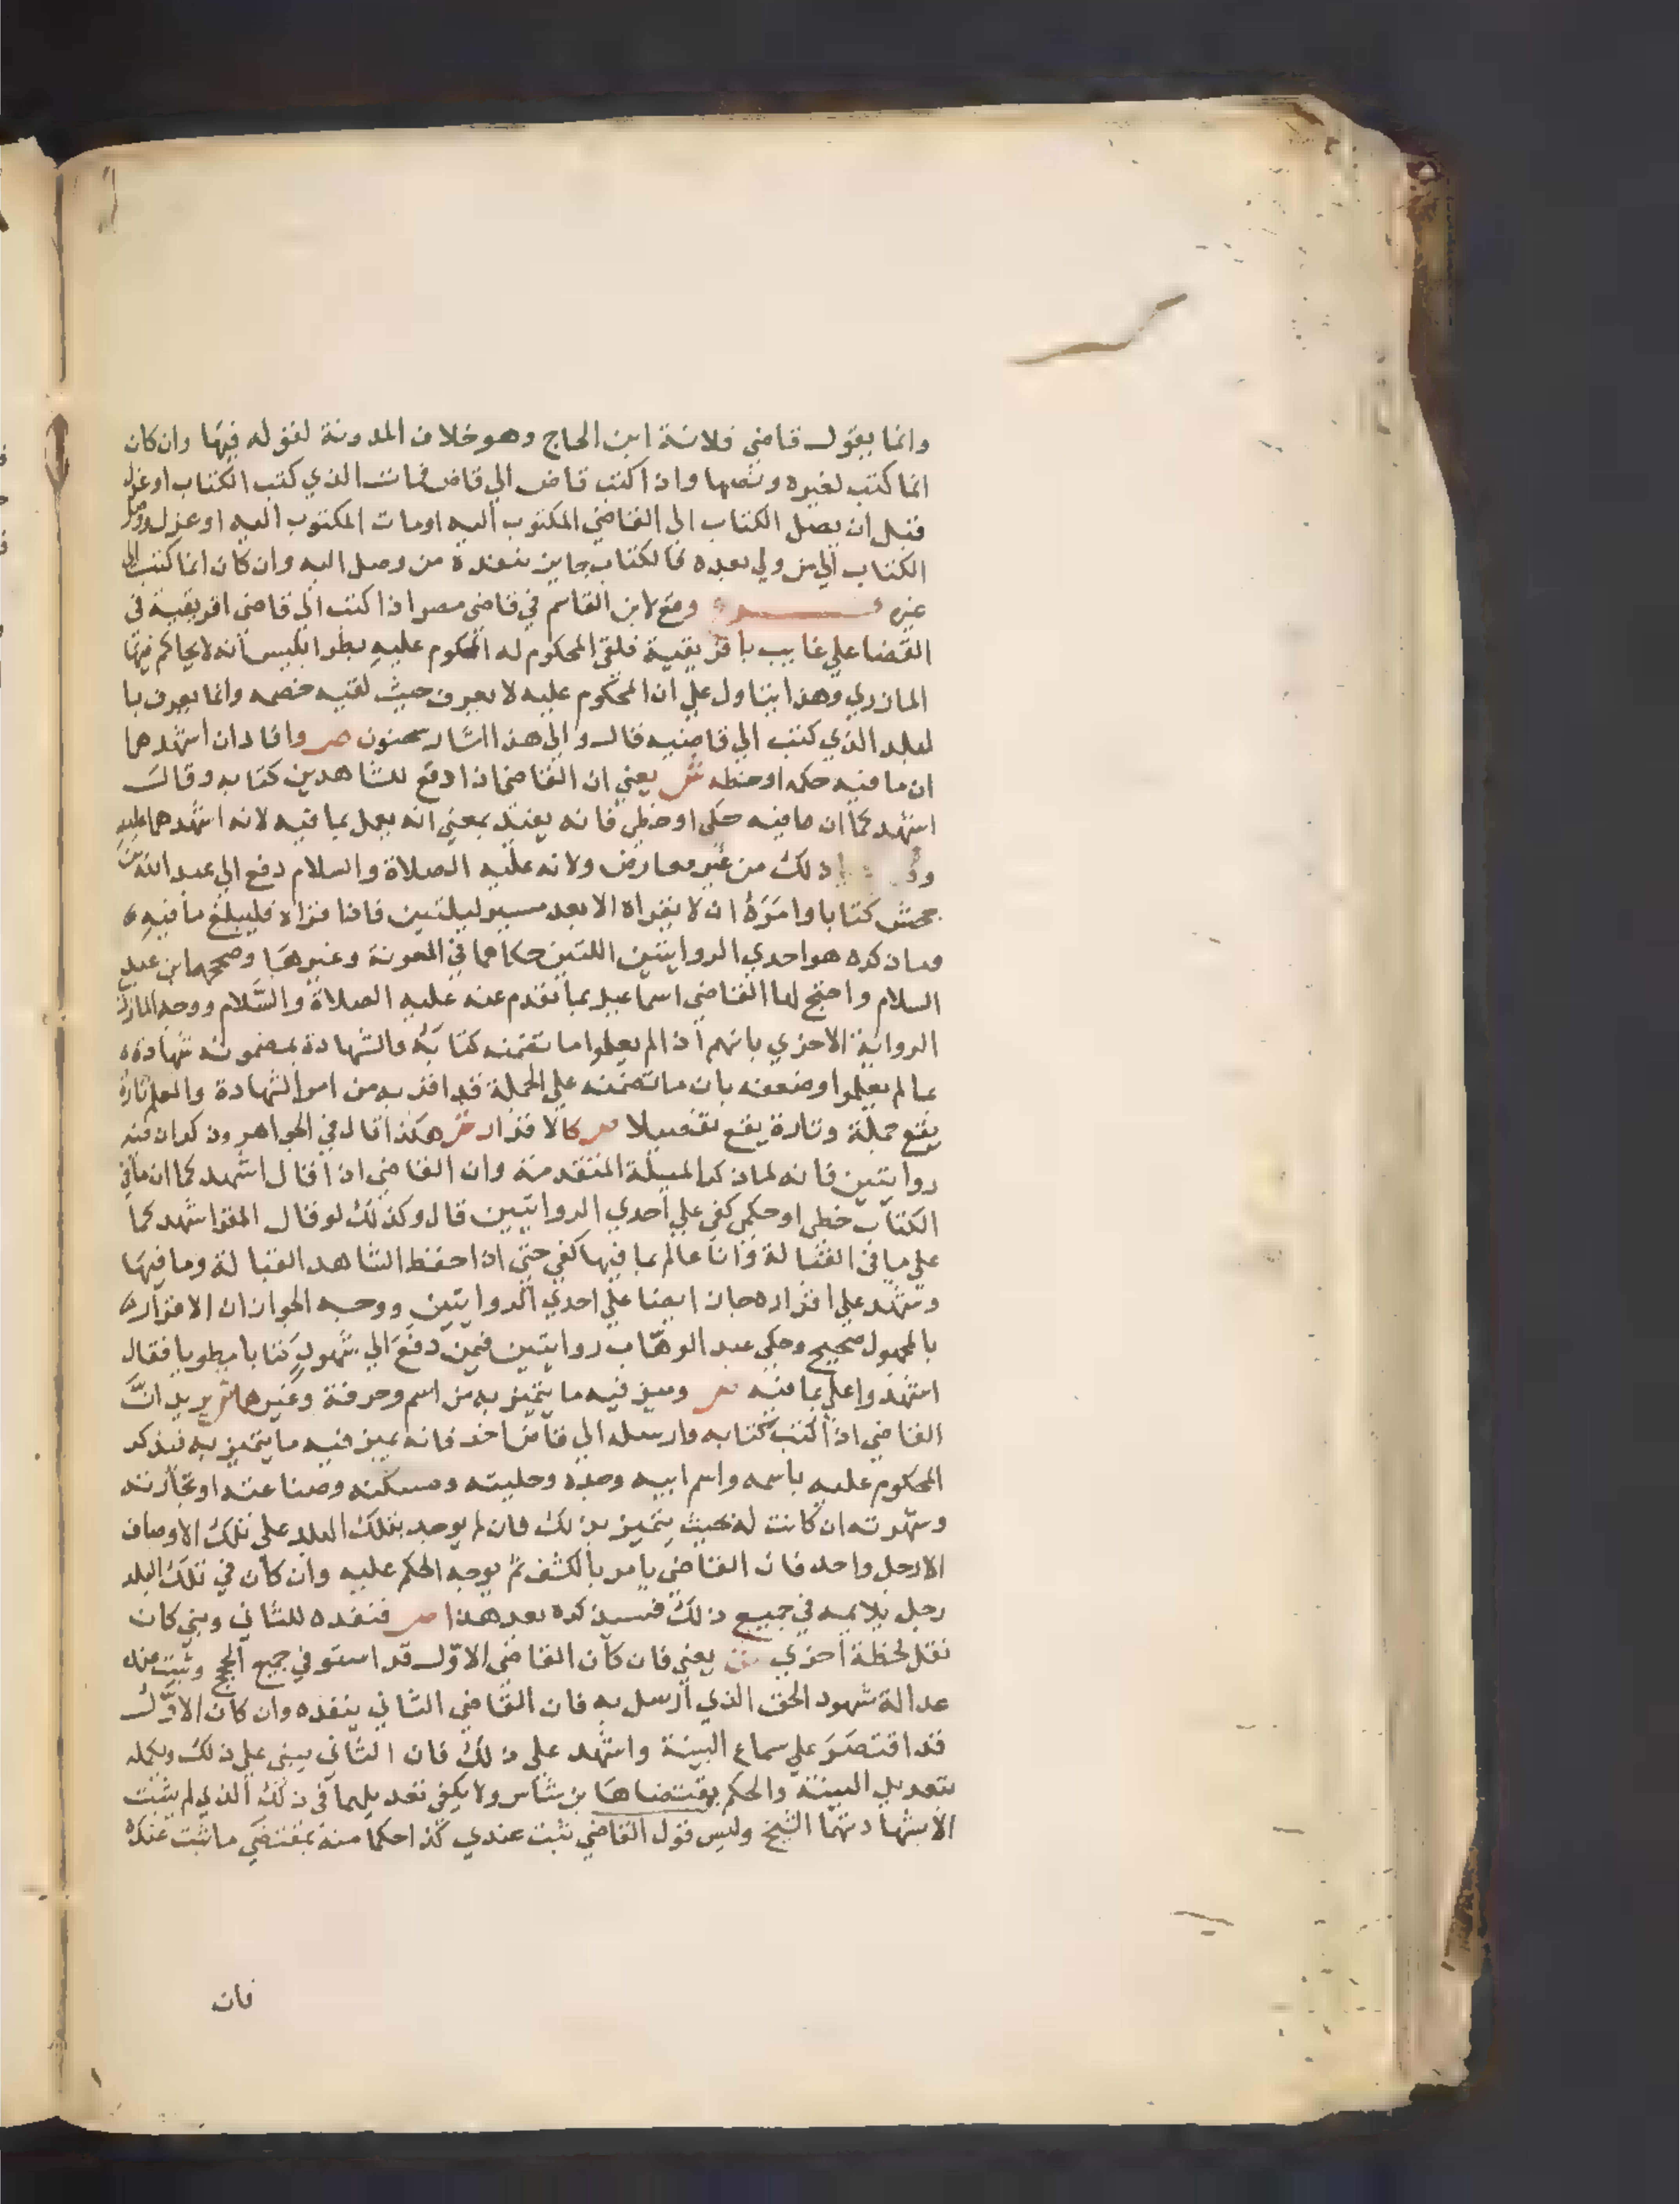 وانما يقول قاضي فلانة ابن الحاج وهو خلاف المدونة لقوله فيها وان كان
انما كتب لغيره ونصها واذا كتب قاض الي قاض فمات الذي كتب الكتاب او عزل
قبل ان يصل الكتاب الي القاضي المكتوب اليه او مات المكتوب اليه او عزل ووصل
الكتاب الي من ولي بعده فالكتاب جايز ينفذه من وصل اليه وان كان انما كتب الي
غيره وقع لابن القاسم في قاضي مصر اذا كتب الي قاضي افريقية في
القضا علي غايب بافريقية فلقي المحكوم له المحكوم عليه بطرابلس انه لا يحاكم فيها
المازري وهذا يتاول علي ان المحكوم عليه لا يعرف حيث لقيه خصمه وانما يعرف با
لبلد الذي كتب الي قاضيه قال والي هذا اشار سحنون ص وافاد ان اشهدهما
ان ما فيه حكمه او خطه ش يعني ان القاضي اذا دفع للشاهدين كتابه وقال
اشهدكما ان ما فيه حكمي او خطي فانه يفيد بمعني انه يعمل بما فيه لانه اشهدهما عليه
ذلك من غير معارض ولانه عليه الصلاة والسلام دفع الي عبد الله بن
جحش كتابا وامره ان لا يقراه الا بعد مسير ليلتين فاذا قراه فليبلغ ما فيه
وما ذكره هو احدي الروايتين اللتين حكاهما في المعونة وغيرها وصححها ابن عبد
السلام واحتج لها القاضي اسماعيل بما تقدم عنه عليه الصلاة والسلام ووجه المازري
الرواية الاخري بانهم اذا لم يعلموا ما تضمنه كتابه فالشهادة بمضمونه شهادة
بما لم يعلموا وضعفه بان ما تضمنه علي الجملة قد اقر به من امر الشهادة والعلم تارة
يقع جملة وتارة يقع تفصيلا ص كالاقرار ش هكذا قال في الجواهر وذكر ان فيه
روايتين فانه لما ذكر المسيلة المتقدمة وان القاضي اذا قال اشهدكما ان ما في
الكتاب خطي او حكمي كفي علي احدي الروايتين قال وكذلك لو قال المقر اشهدكما
علي ما في القبالة وانا عالم بما فيها كفي حتي اذا حفظ الشاهد القبالة وما فيها
وشهد علي اقراره جاز ايضا علي احدي الروايتين ووجه الجواز ان الاقرار
بالمجهول صحيح وحكي عبد الوهاب روايتين فيمن دفع الي شهود كتابا مطويا فقال
اشهدوا علي بما فيه ص وميز فيه ما يتميز به من اسم وحرفة وغيرهما ش يريد ان
القاضي اذا كتب كتابه وارسله الي قاض اخر فانه يميز فيه ما يتميز به فيذكر
المحكوم عليه باسمه واسم ابيه وجده وحليته ومسكنه وصناعته او تجارته
وشهرته ان كانت له بحيث يتميز بذلك فان لم يوجد بتلك البلد علي تلك الاوصاف
الا رجل واحد فان القاضي يامر بالكشف ثم يوجه الحكم عليه وان كان في تلك البلد
رجل يلايمه في جميع ذلك فسيذكره بعد هذا ص فنفذه للثاني وبني كان
نقل لخطة اخري ش يعني فان كان القاضي الاول قد استوفي جميع الحجج وثبت عنده
عدالة شهود الحق الذي ارسل به فان القاضي الثاني ينفذه وان كان الاول
قد اقتصر علي سماع البينة واشهد علي ذلك فان الثاني يبني علي ذلك ويكمله
بتعديل البينة والحكم بمقتضاها بن شاس ولا يكفي تعديلهما في ذلك الذي لم يثبت
الا بشهادتهما الشيخ وليس قول القاضي ثبت عندي كذا حكما منه بمقتضي ما ثبت عنده
فان